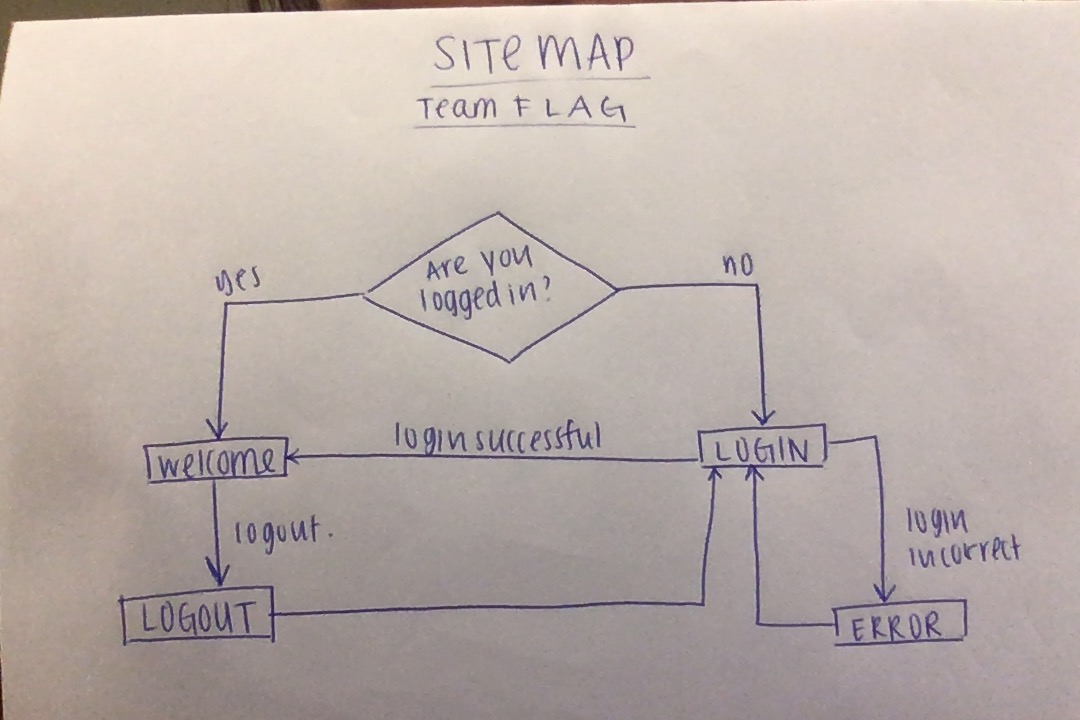 SITe MAP
Team FLAG
Are you
logged in?
yes
no
login successful
welcome
LOGIN
logout.
login
incorrect
LOGOUT
ERROR